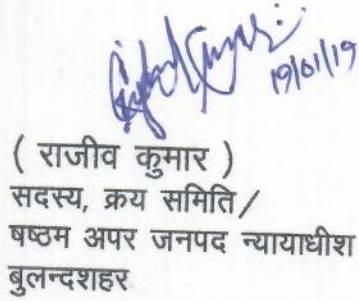 19/01/19
( राजीव कुमार )
सदस्य, क्रय समिति/
षष्ठम अपर जनपद न्यायाधीश
बुलन्दशहर